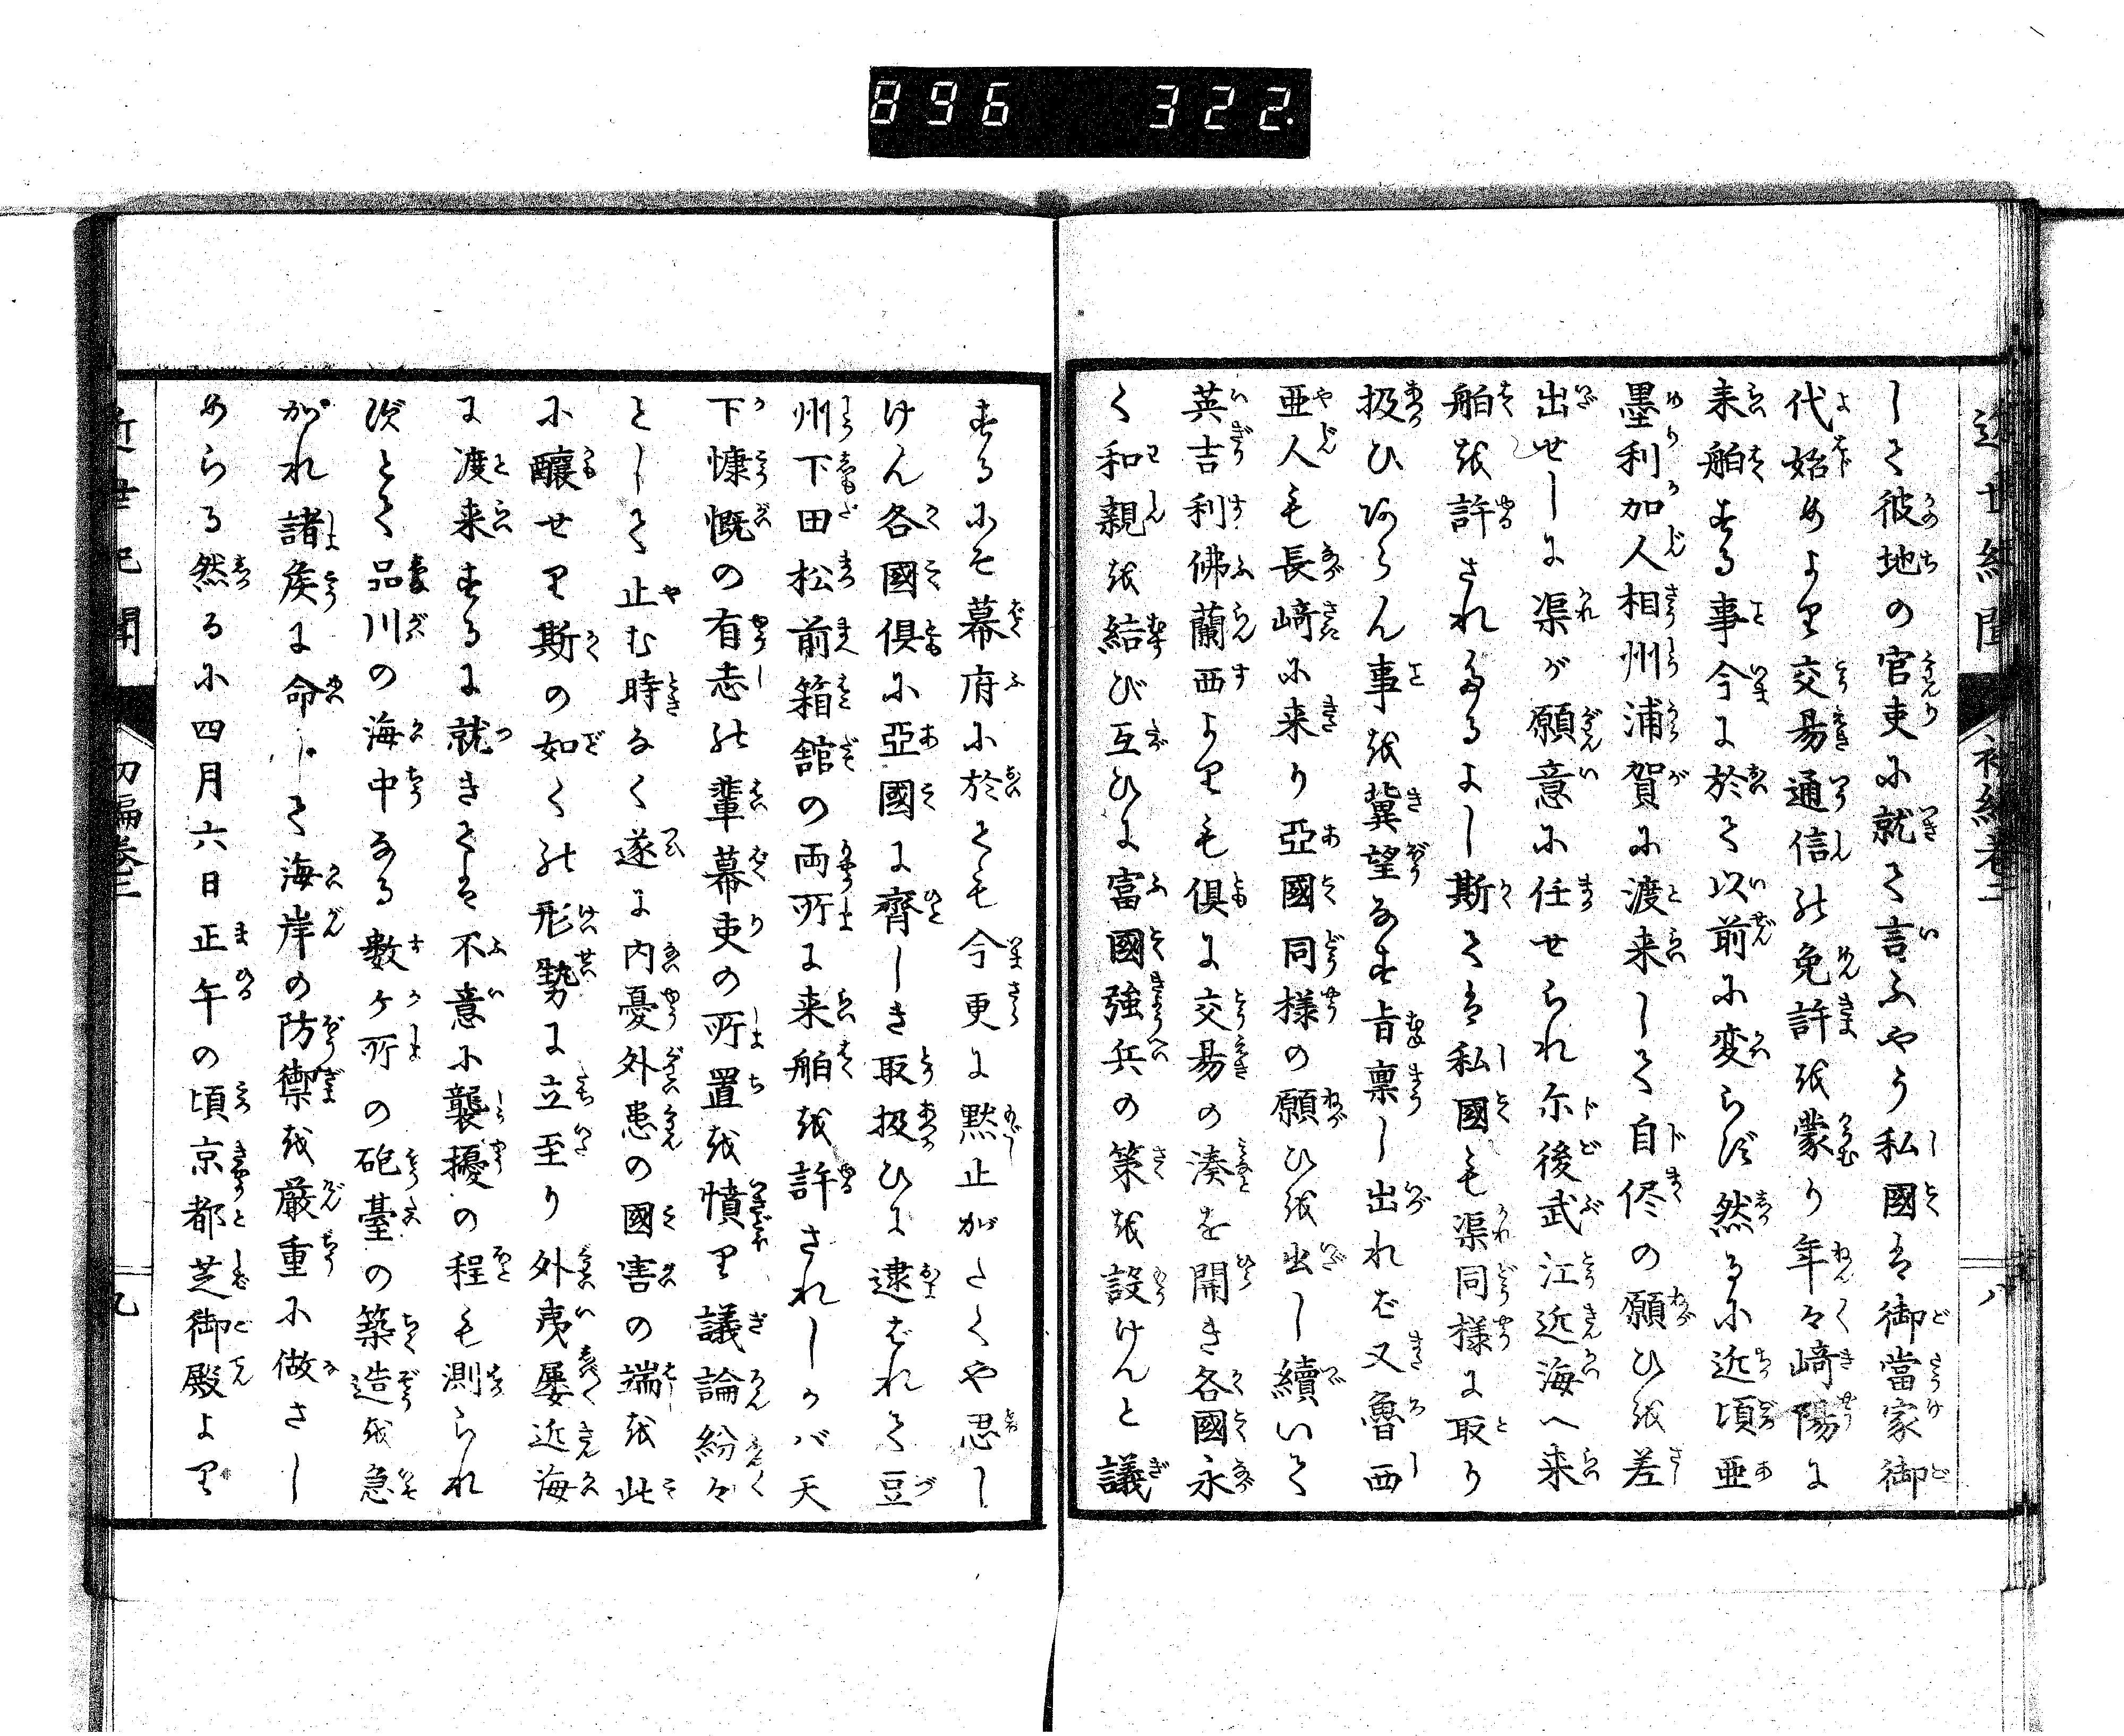 896 322.
近世紀聞 初編巻二 八
して彼地の官吏に就て言ふやう私國は御當家御
代始めより交易通信の免許を蒙り年々﨑陽に
来舶する事今に於て以前に変らず然るに近頃亜
墨利加人相州浦賀に渡来して自侭の願ひを差
出せしに渠が願意に任せられ尓後武江近海へ来
舶を許されたるよし斯ては私國も渠同様に取り
扱ひ阿らん事を冀望なす旨稟し出れば又魯西
亜人も長﨑に来り亞國同様の願ひを出し續いて
英吉利佛蘭西よりも倶に交易の湊を開き各國永
く和親を結び互ひに富國強兵の策を設けんと議
するにぞ幕府に於ても今更に黙止がたくや思し
けん各國倶に亞國に齊しき取扱ひに逮ばれて豆
州下田松前箱舘の両所に来舶を許されしかバ天
下慷慨の有志の輩幕吏の所置を憤り議論紛々
として止む時なく遂に内憂外患の國害の端を此
に釀せり斯の如くの形勢に立至り外夷屡近海
に渡来するに就きては不意に襲擾の程も測られ
ずとて品川の海中なる數ヶ所の砲臺の築造を急
がれ諸矦に命じて海岸の防禦を厳重に做さし
めらる然るに四月六日正午の頃京都芝御殿より
近世紀聞 初編巻二 九